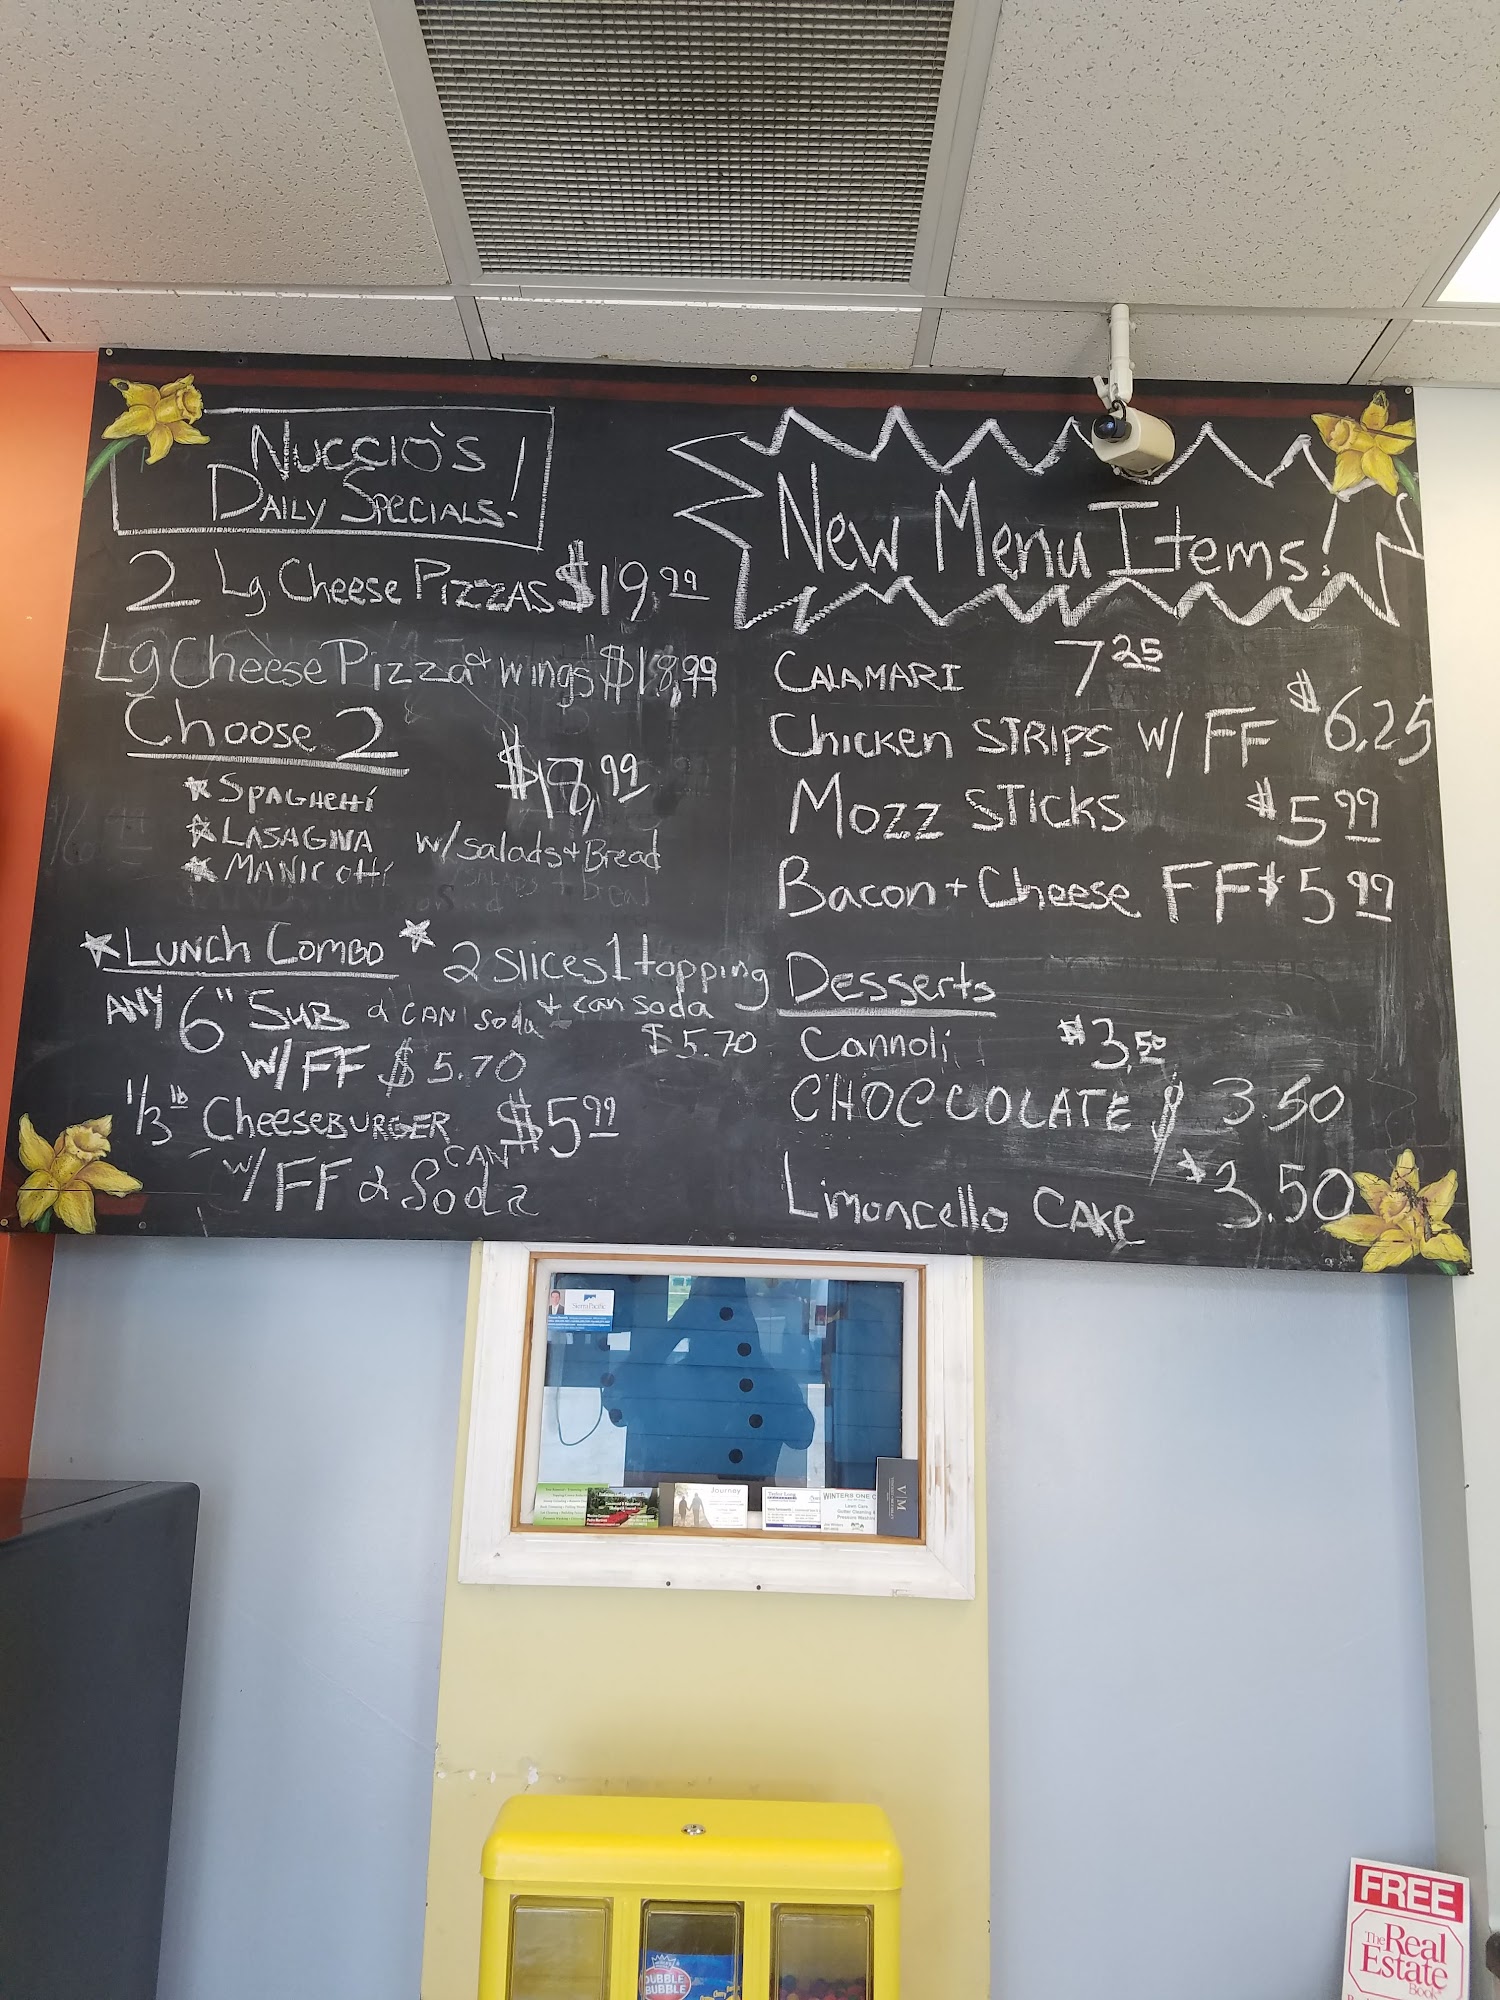 Nuccio's
Daily Specials!
2 Lg. Cheese Pizzas $19.99
Lg Cheese Pizza + wings $18.99
Choose 2
$18.99
* Spaghetti
* Lasagna
w/salads + Bread
* Manicotti
* Lunch Combo *
2 slices 1 topping
+ can soda
$5.70
ANY 6" Sub & CAN soda
w/FF $5.70
1/3 lb Cheeseburger $5.99
w/FF & CAN Soda
New Menu Items!
Calamari 7.25
Chicken STRIPS w/ FF $6.25
Mozz STICKS $5.99
Bacon + Cheese FF $5.99
Desserts
Cannoli $3.50
CHOCCOLATE $ 3.50
Limoncello CAKE $3.50
Journey
WINTERS ONE C
Lawn Care
Gutter Cleaning &
Pressure Washing
VM
DUBBLE
BUBBLE
FREE
The Real
Estate
Book